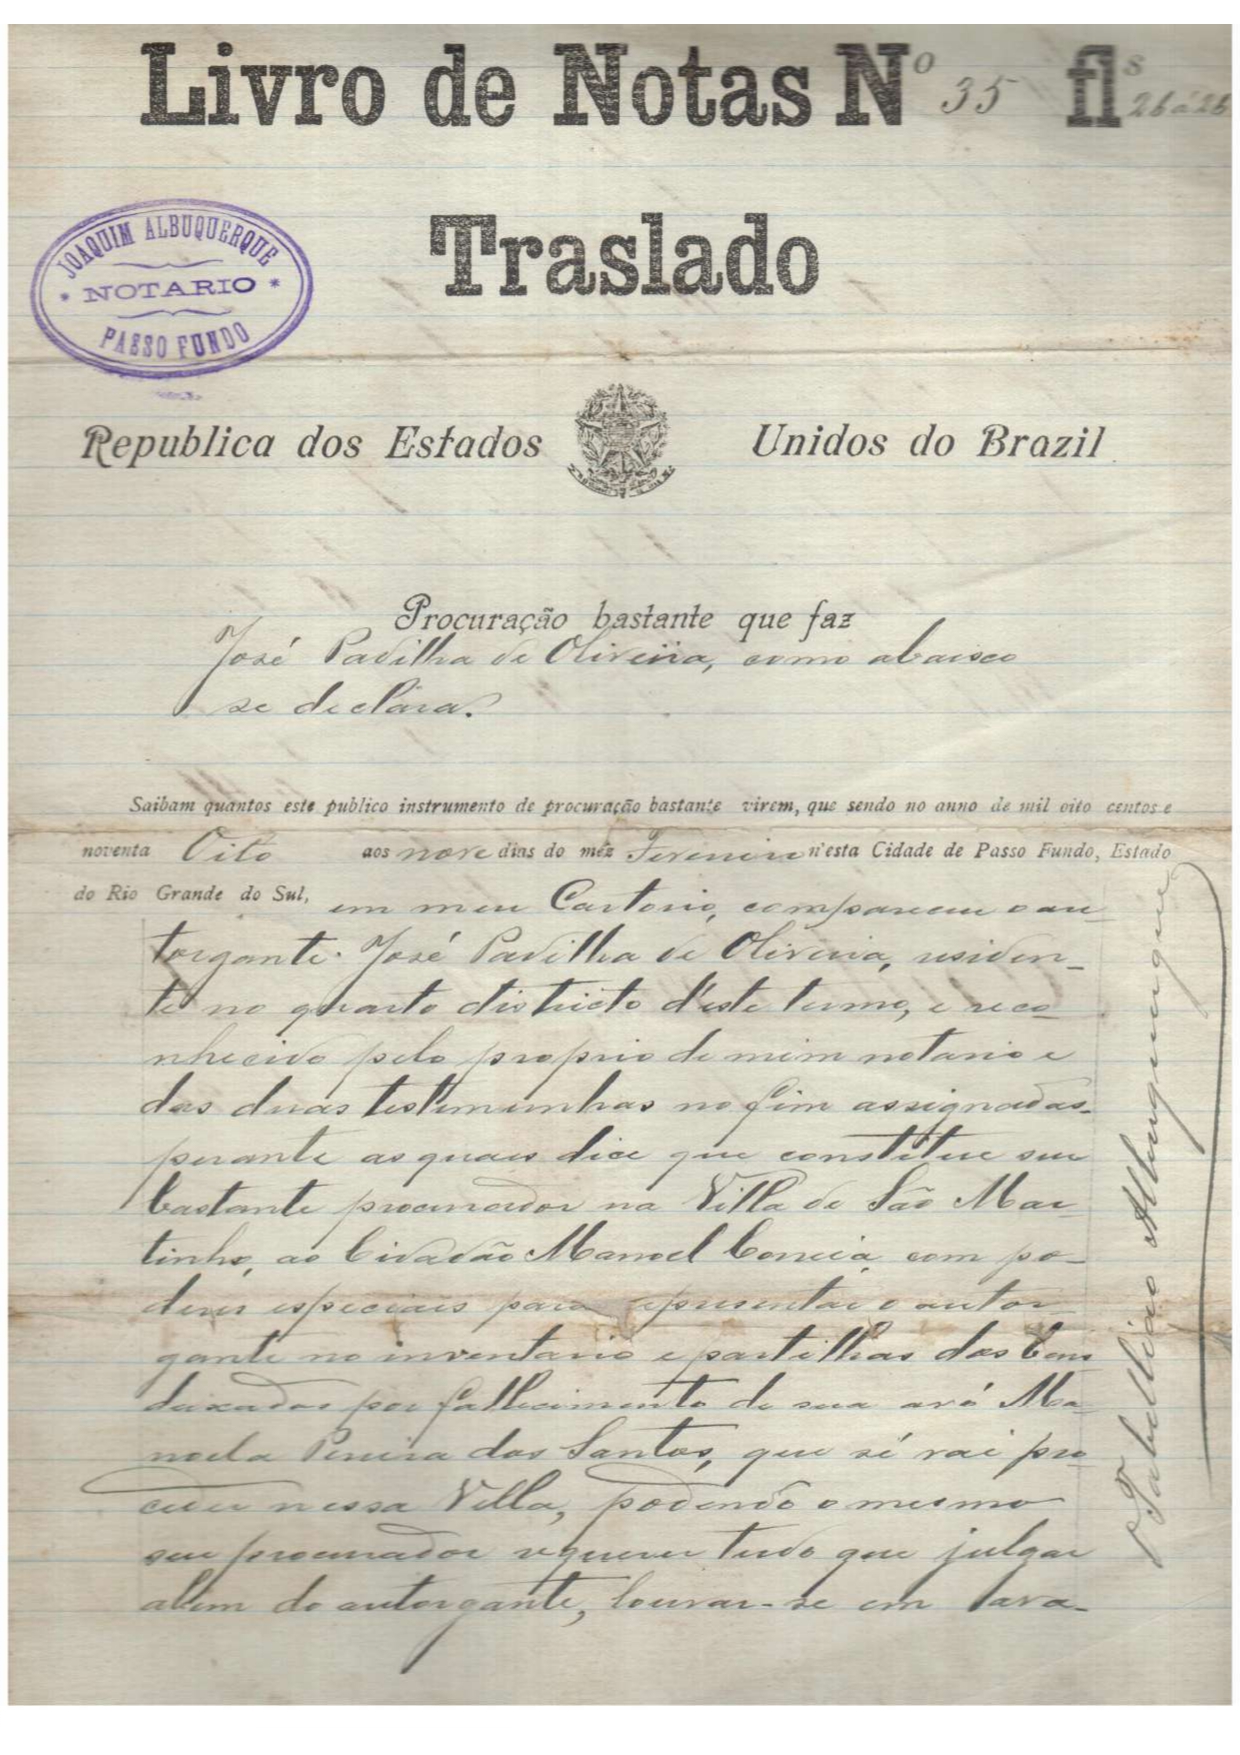 Livro de Notas Nº 35 fls 26 á 26
Traslado
JOAQUIM ALBUQUERQUE
* NOTARIO *
PASSO FUNDO
Republica dos Estados Unidos do Brazil
Procuração bastante que faz
José Padilha de Oliveira, como abaixo
se declára.
Saibam quantos este publico instrumento de procuração bastante virem, que sendo no anno de mil oito centos e
noventa Oito aos nove dias do mêz Fevereiro n'esta Cidade de Passo Fundo, Estado
do Rio Grande do Sul, em meu Cartorio, compareceu o au-
torgante José Padilha de Oliveira, residen-
te no quarto districto d'este termo, e reco-
nhecido pelo proprio de mim notario e
das duas testimunhas no fim assignadas
perante as quaes dice que constitue seu
bastante procurador na Villa de São Mar-
tinho, ao Cidadão Manoel Correia, com po-
deres especiais para representar o autor-
gante no inventario e partilhas dos bens
deixados por fallecimento de sua avó Ma-
noela Pereira dos Santos, que sé vai pro-
ceder nessa Villa, podendo o mesmo
seu procurador requerer tudo que julgar
a bem do autorgante, louvar-se em lava-
O Tabellião Albuquerque